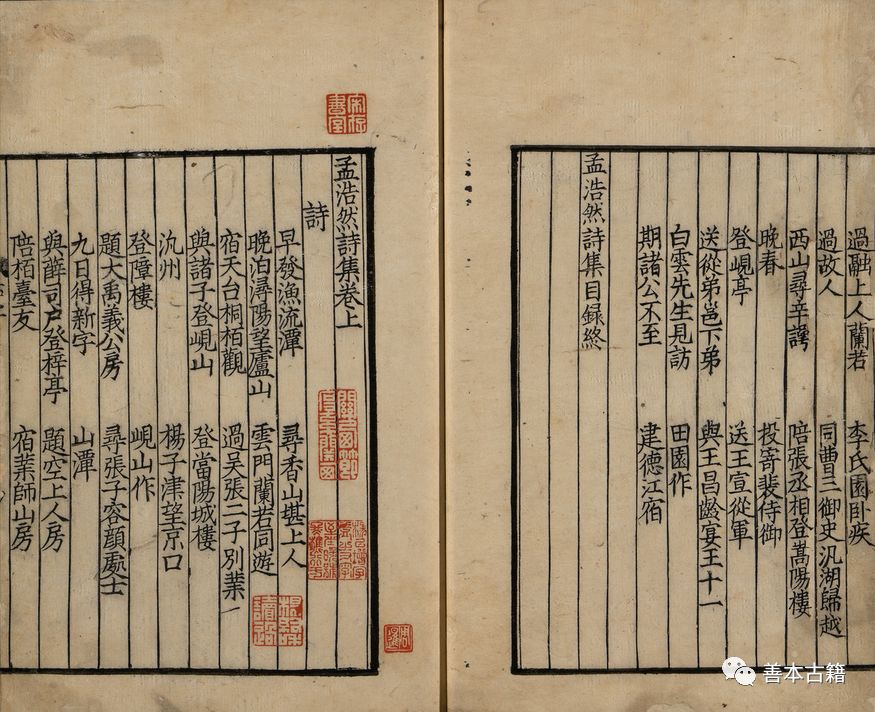 過融上人蘭若 李氏園卧疾
過故人 同曹三御史汎湖歸越
西山尋辛諤 陪張丞相登嵩陽樓
晚春 投寄裴侍御
登峴亭 送王宣從軍
送從弟邕下弟 與王昌齡宴王十一
白雲先生見訪 田園作
期諸公不至 建德江宿
孟浩然詩集目録終
宋存書室
孟浩然詩集卷上
詩
早發漁流潭 尋香山堪上人
晚泊潯陽望廬山 雲門蘭若同遊
宿天台桐栢觀 過吴張二子別業一
與諸子登峴山 登當陽城樓
氿州 楊子津望京口
登障樓 峴山作
題大禹義公房 尋張子容顔處士
九日得新字 山潭
與薛司户登梓亭 題空上人房
陪栢臺友 宿業師山房
周暹
善本古籍